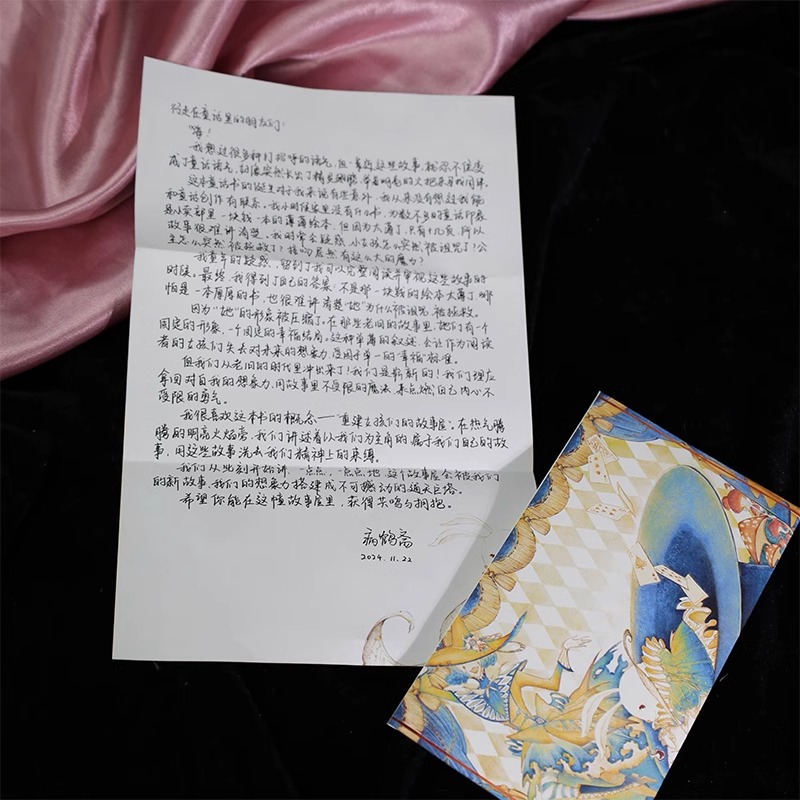 行走在童话里的朋友们：
"嗨！
我想过很多种打招呼的语气，但一靠近这些故事，就你不住变
成了童话语气，好像突然长出了精灵翅膀，举着明亮的火把来寻找同伴。
这本童话书的诞生对于我来说有些意外，我从来没有想过我能
和童话创作有联系。我小时候家里没有什么书，为数不多的童话印象
是小卖部里一块钱一本的薄薄绘本，但因为太薄了，只有十几页，所以
故事很难讲清楚。我时常会疑惑，小女孩怎么突然被诅咒了？公
主怎么突然被拯救了？接吻居然有这么大的魔力？
我童年的疑惑，留到了我可以完整阅读并审视这些故事的
时候。最终，我得到了自己的答案：不是那一块钱的绘本太薄了，哪
怕是一本厚厚的书，也很难讲清楚"她"为什么被诅咒、被拯救。
因为"她"的形象被压缩了。在那些老旧的故事里，她们有一个
固定的形象，一个固定的幸福结局。这种单薄的叙述，会让作为阅读
者的女孩们失去对未来的想象力，受困于单一的幸福标准。
但我们从老旧的时代里冲出来了！我们是崭新的！我们理应
拿回对自我的想象力，用故事里不受限的魔法，来点燃自己内心不
受限的勇气。
我很喜欢这本书的概念——"重建女孩们的故事屋"。在热气腾
腾的明亮火焰旁，我们讲述着以我们为主角的、属于我们自己的故
事，用这些故事洗去我们精神上的束缚。
我们从此刻开始讲，一点点，一点点地，这个故事屋会被我们
的新故事、我们的想象力搭建成不可撼动的通天巨塔。
希望你能在这幢故事屋里，获得共鸣与拥抱。
病鹤斋
2024.11.22